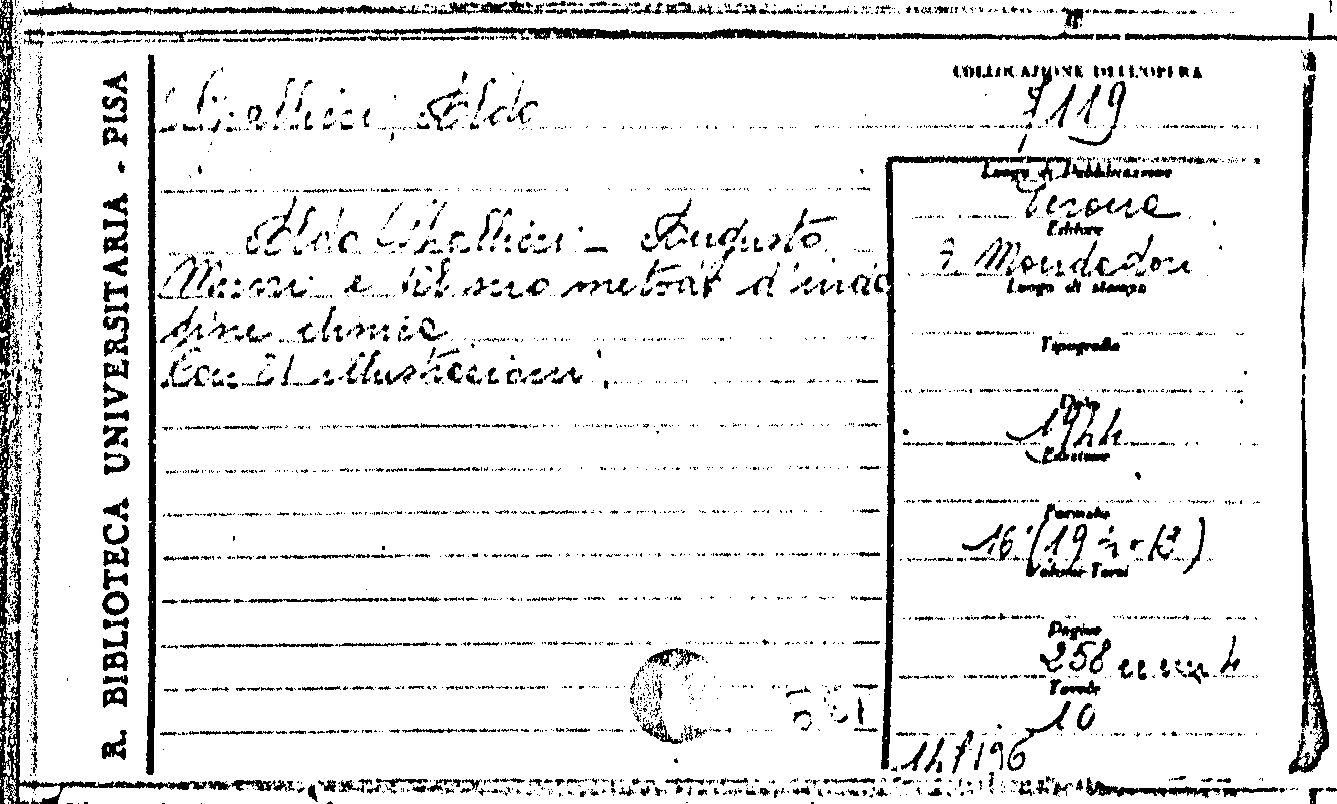 R. BIBLIOTECA UNIVERSITARIA - PISA
Spallicci, Aldo
Aldo Spallicci - Augusto
Murri e il suo metodo d'inda
gine clinica
Con 21 illustrazioni.
COLLOCAZIONE DELL'OPERA
119
Luogo di Pubblicazione
Verona
Editore
Mondadori
Luogo di stampa
Tipografia
Data
1944
Edizione
Formato
16° (19
Volume Tomi
Pagine
258
Tavole
10